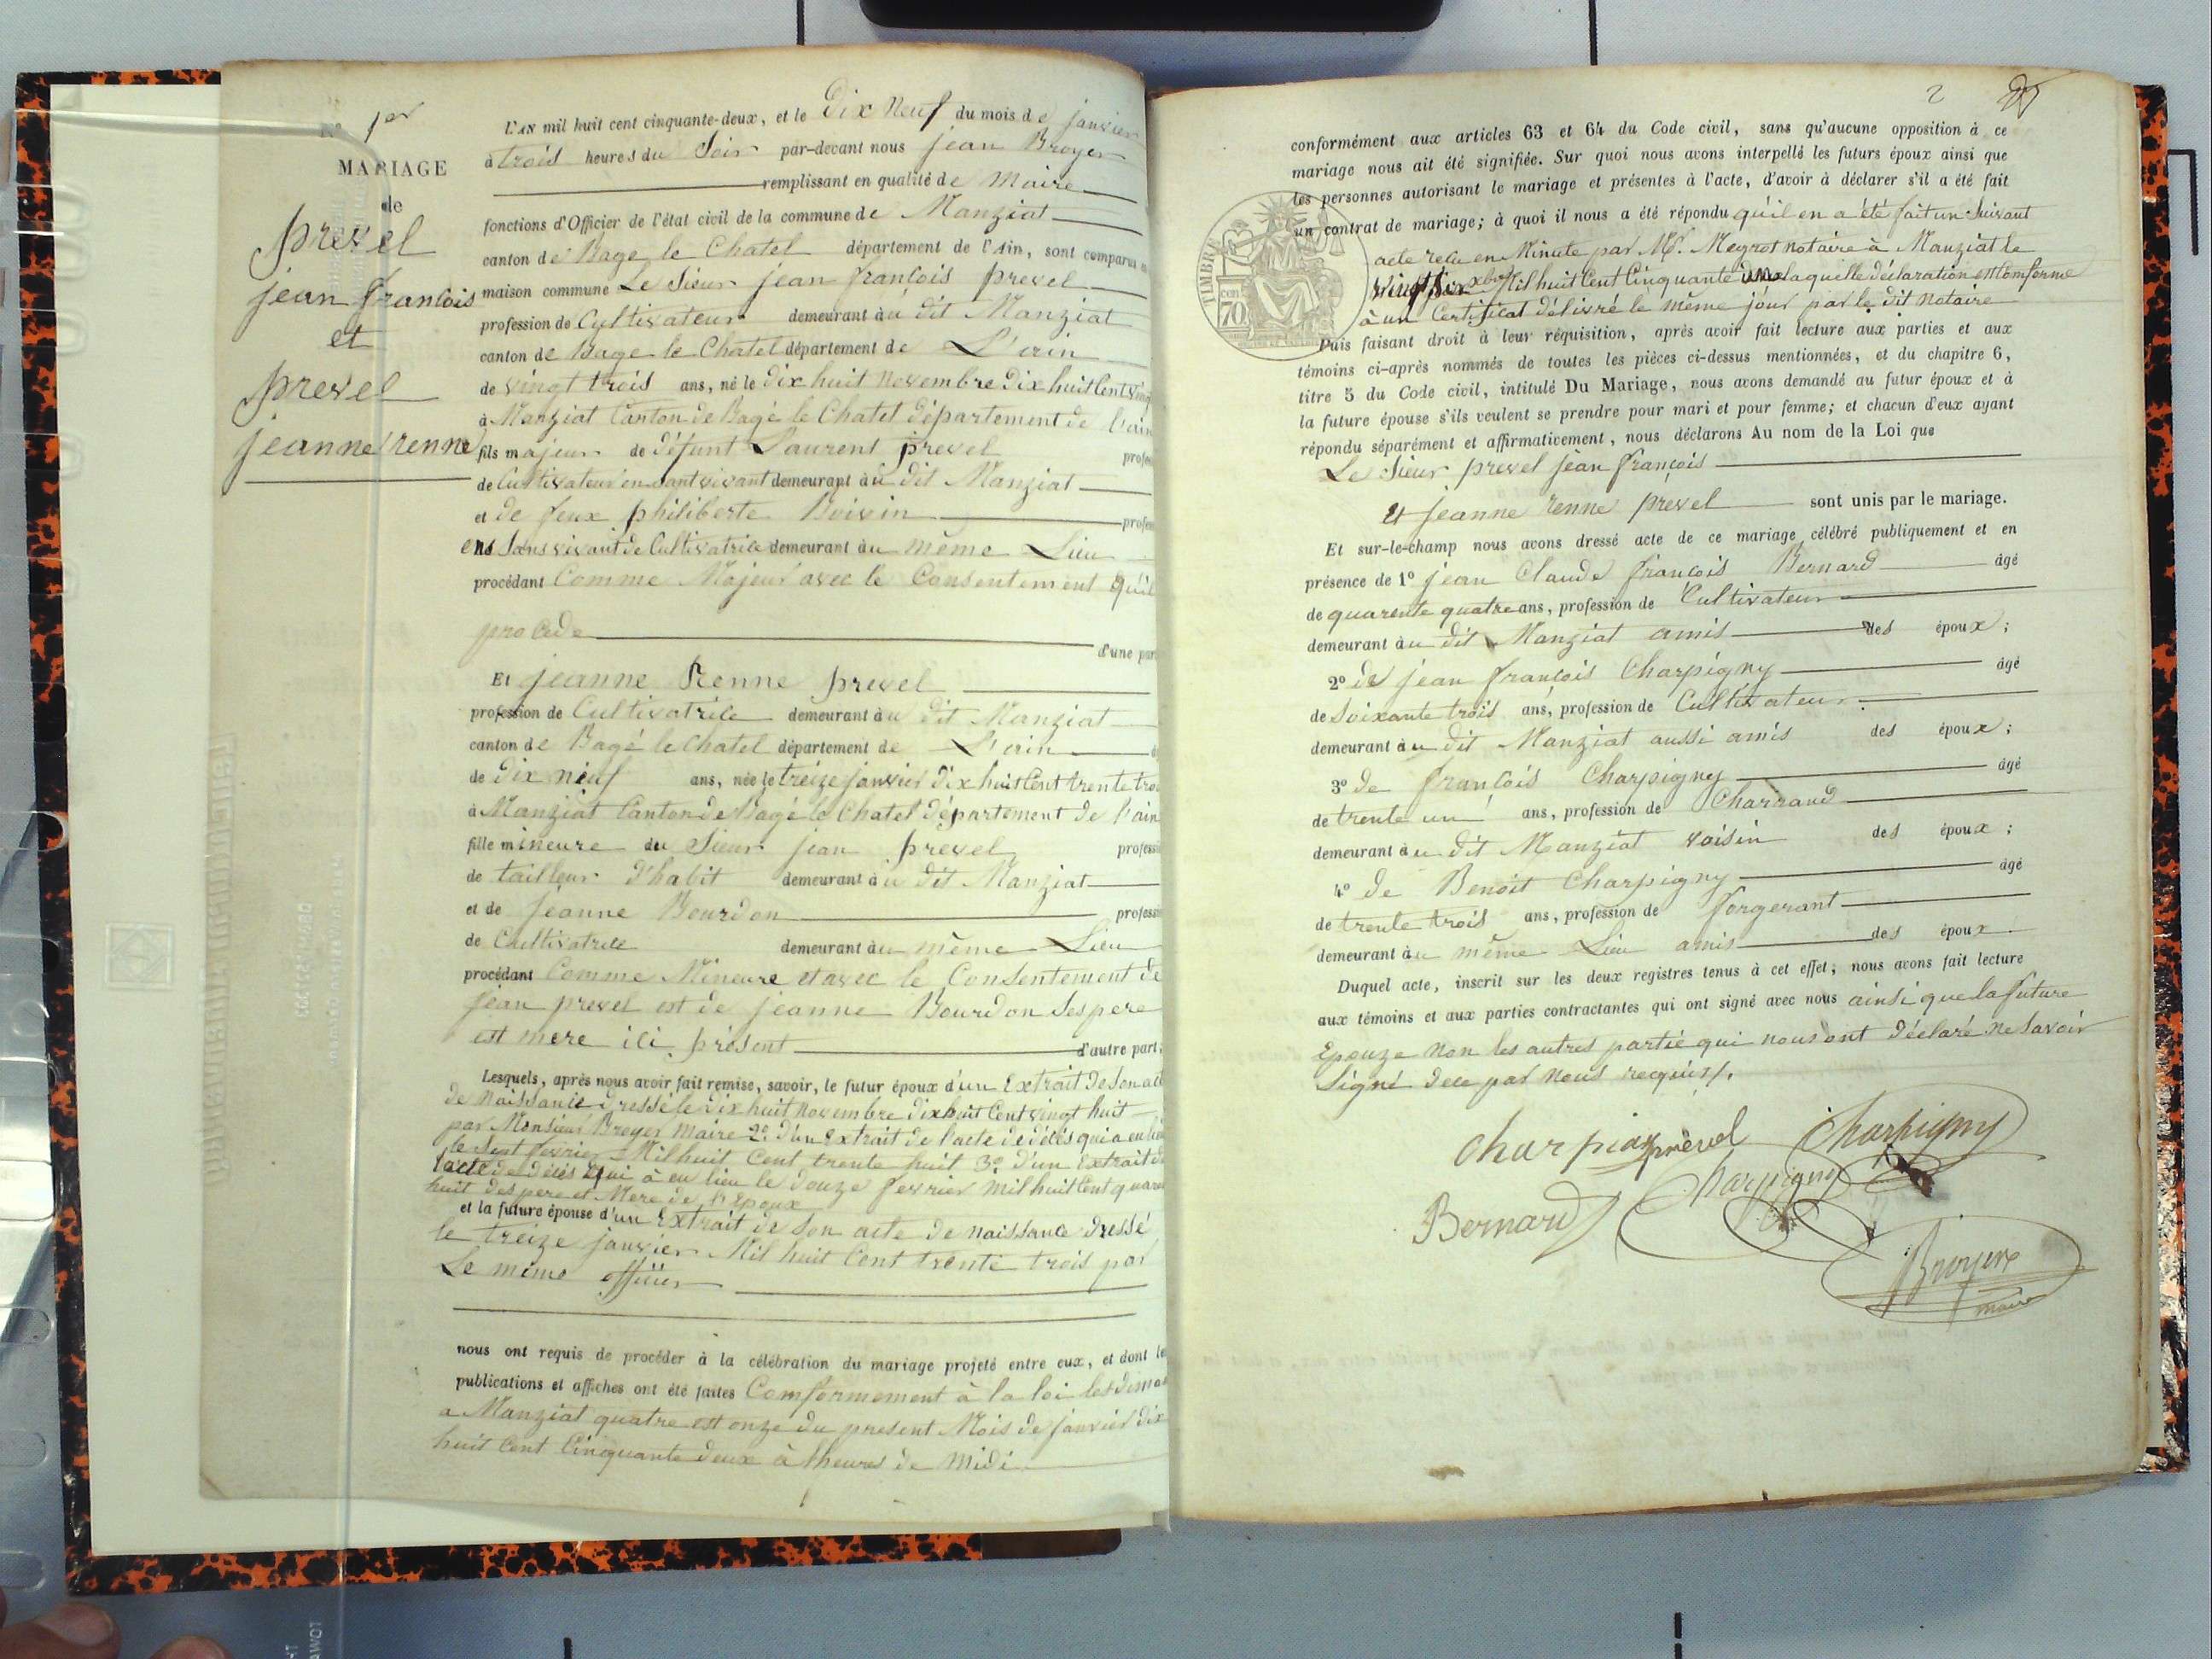 N° 1er
MARIAGE
de
prevel
jean francois
et
prevel
jeanne renne
L'AN mil huit cent cinquante-deux, et le Dix Neuf du mois de janvier
à trois heures du Soir par-devant nous jean Broyer
remplissant en qualité de Maire
fonctions d'Officier de l'état civil de la commune de Manziat
canton de Bage le Chatel département de l'Ain, sont comparus en
maison commune Le Sieur jean francois prevel
profession de Cultivateur demeurant au dit Manziat
canton de Bage le Chatel département de L'ain
de vingt trois ans, né le dix huit Novembre Dix huit Cent ving
à Manziat Canton de Bagé le Chatel département de l'ain
fils majeur de défunt Laurent prevel profes
de Cultivateur en sant vivant demeurant au dit Manziat
et de feux philiberte Boivin profes
ens Sans vivant de Cultivatrice demeurant au même Lieu
procédant Comme Majeur avec le Consentement qu'il
procede d'une part
Et jeanne Renne prevel
profession de Cultivatrice demeurant au dit Manziat
canton de Bagé le Chatel département de L'ain
de dix neuf ans, née le treize janvier dix huit Cent trente troi
à Manziat Canton de Bagé le Chatel département de l'ain
fille mineure du Sieur jean prevel professi
de tailleur d'habit demeurant au dit Manziat
et de jeanne Bourdon professi
de Cultivatrice demeurant au même Lieu
procédant Comme Mineure et avec le Consentement de
jean prevel est de jeanne Bourdon Ses pere
est mere ici présent d'autre part;
Lesquels, après nous avoir fait remise, savoir, le futur époux d'un Extrait de Son act
de Naissance dressé le dix huit Novembre dix huit Cent vingt huit
par Monsieur Broyer Maire 2° d'un Extrait de l'acte de décés qui a eu lieu
le Sept fevrier Mil huit Cent trente huit 3° d'un Extrait de
l'acte de décés qui à eu lieu le douze fevrier Mil huit Cent quaran
huit des pere et Mere de l'Epoux
et la future épouse d'un Extrait de Son acte de naissance dressé
le treize janvier Mil huit Cent trente trois par
Le même officier
nous ont requis de procéder à la célébration du mariage projeté entre eux, et dont les
publications et affiches ont été faites Comformement à la loi les diman
a Manziat quatre est onze du present Mois de janvier dix
huit Cent Cinquante deux à heures de Midi
2
conformément aux articles 63 et 64 du Code civil, sans qu'aucune opposition à ce
mariage nous ait été signifiée. Sur quoi nous avons interpellé les futurs époux ainsi que
les personnes autorisant le mariage et présentes à l'acte, d'avoir à déclarer s'il a été fait
un contrat de mariage; à quoi il nous a été répondu qu'il en a été fait un Suivant
TIMBRE
70 cen
acte reçu en Minute par Mr. Meyrot notaire à Manziat le
vingt Six xbre Mil huit Cent Cinquante une laquelle déclaration est Comforme
à un Certificat délivré le même jour par le dit notaire
Puis faisant droit à leur réquisition, après avoir fait lecture aux parties et aux
témoins ci-après nommés de toutes les pièces ci-dessus mentionnées, et du chapitre 6,
titre 5 du Code civil, intitulé Du Mariage, nous avons demandé au futur époux et à
la future épouse s'ils veulent se prendre pour mari et pour femme; et chacun d'eux ayant
répondu séparément et affirmativement, nous déclarons Au nom de la Loi que
Le Sieur prevel jean françois
Et jeanne renne prevel sont unis par le mariage.
Et sur-le-champ nous avons dressé acte de ce mariage célébré publiquement et en
présence de 1° jean Claude françois Bernard âgé
de quarente quatre ans, profession de Cultivateur
demeurant au dit Manziat amis des époux;
2° de jean françois Charpigny âgé
de Soixante trois ans, profession de Cultivateur
demeurant au dit Manziat aussi amis des époux;
3° de françois Charpigny âgé
de trente un ans, profession de Charraud
demeurant au dit Manziat voisin des époux;
4° de Benoit Charpigny âgé
de trente trois ans, profession de forgerant
demeurant au même Lieu amis des époux.
Duquel acte, inscrit sur les deux registres tenus à cet effet, nous avons fait lecture
aux témoins et aux parties contractantes qui ont signé avec nous ainsi que la future
Epouze non les autres partie qui nous ont déclaré ne Savoir
Signé dece par nous requis.
Charpigny prevel Charpigny
Bernard Charpigny
Broyer
maire